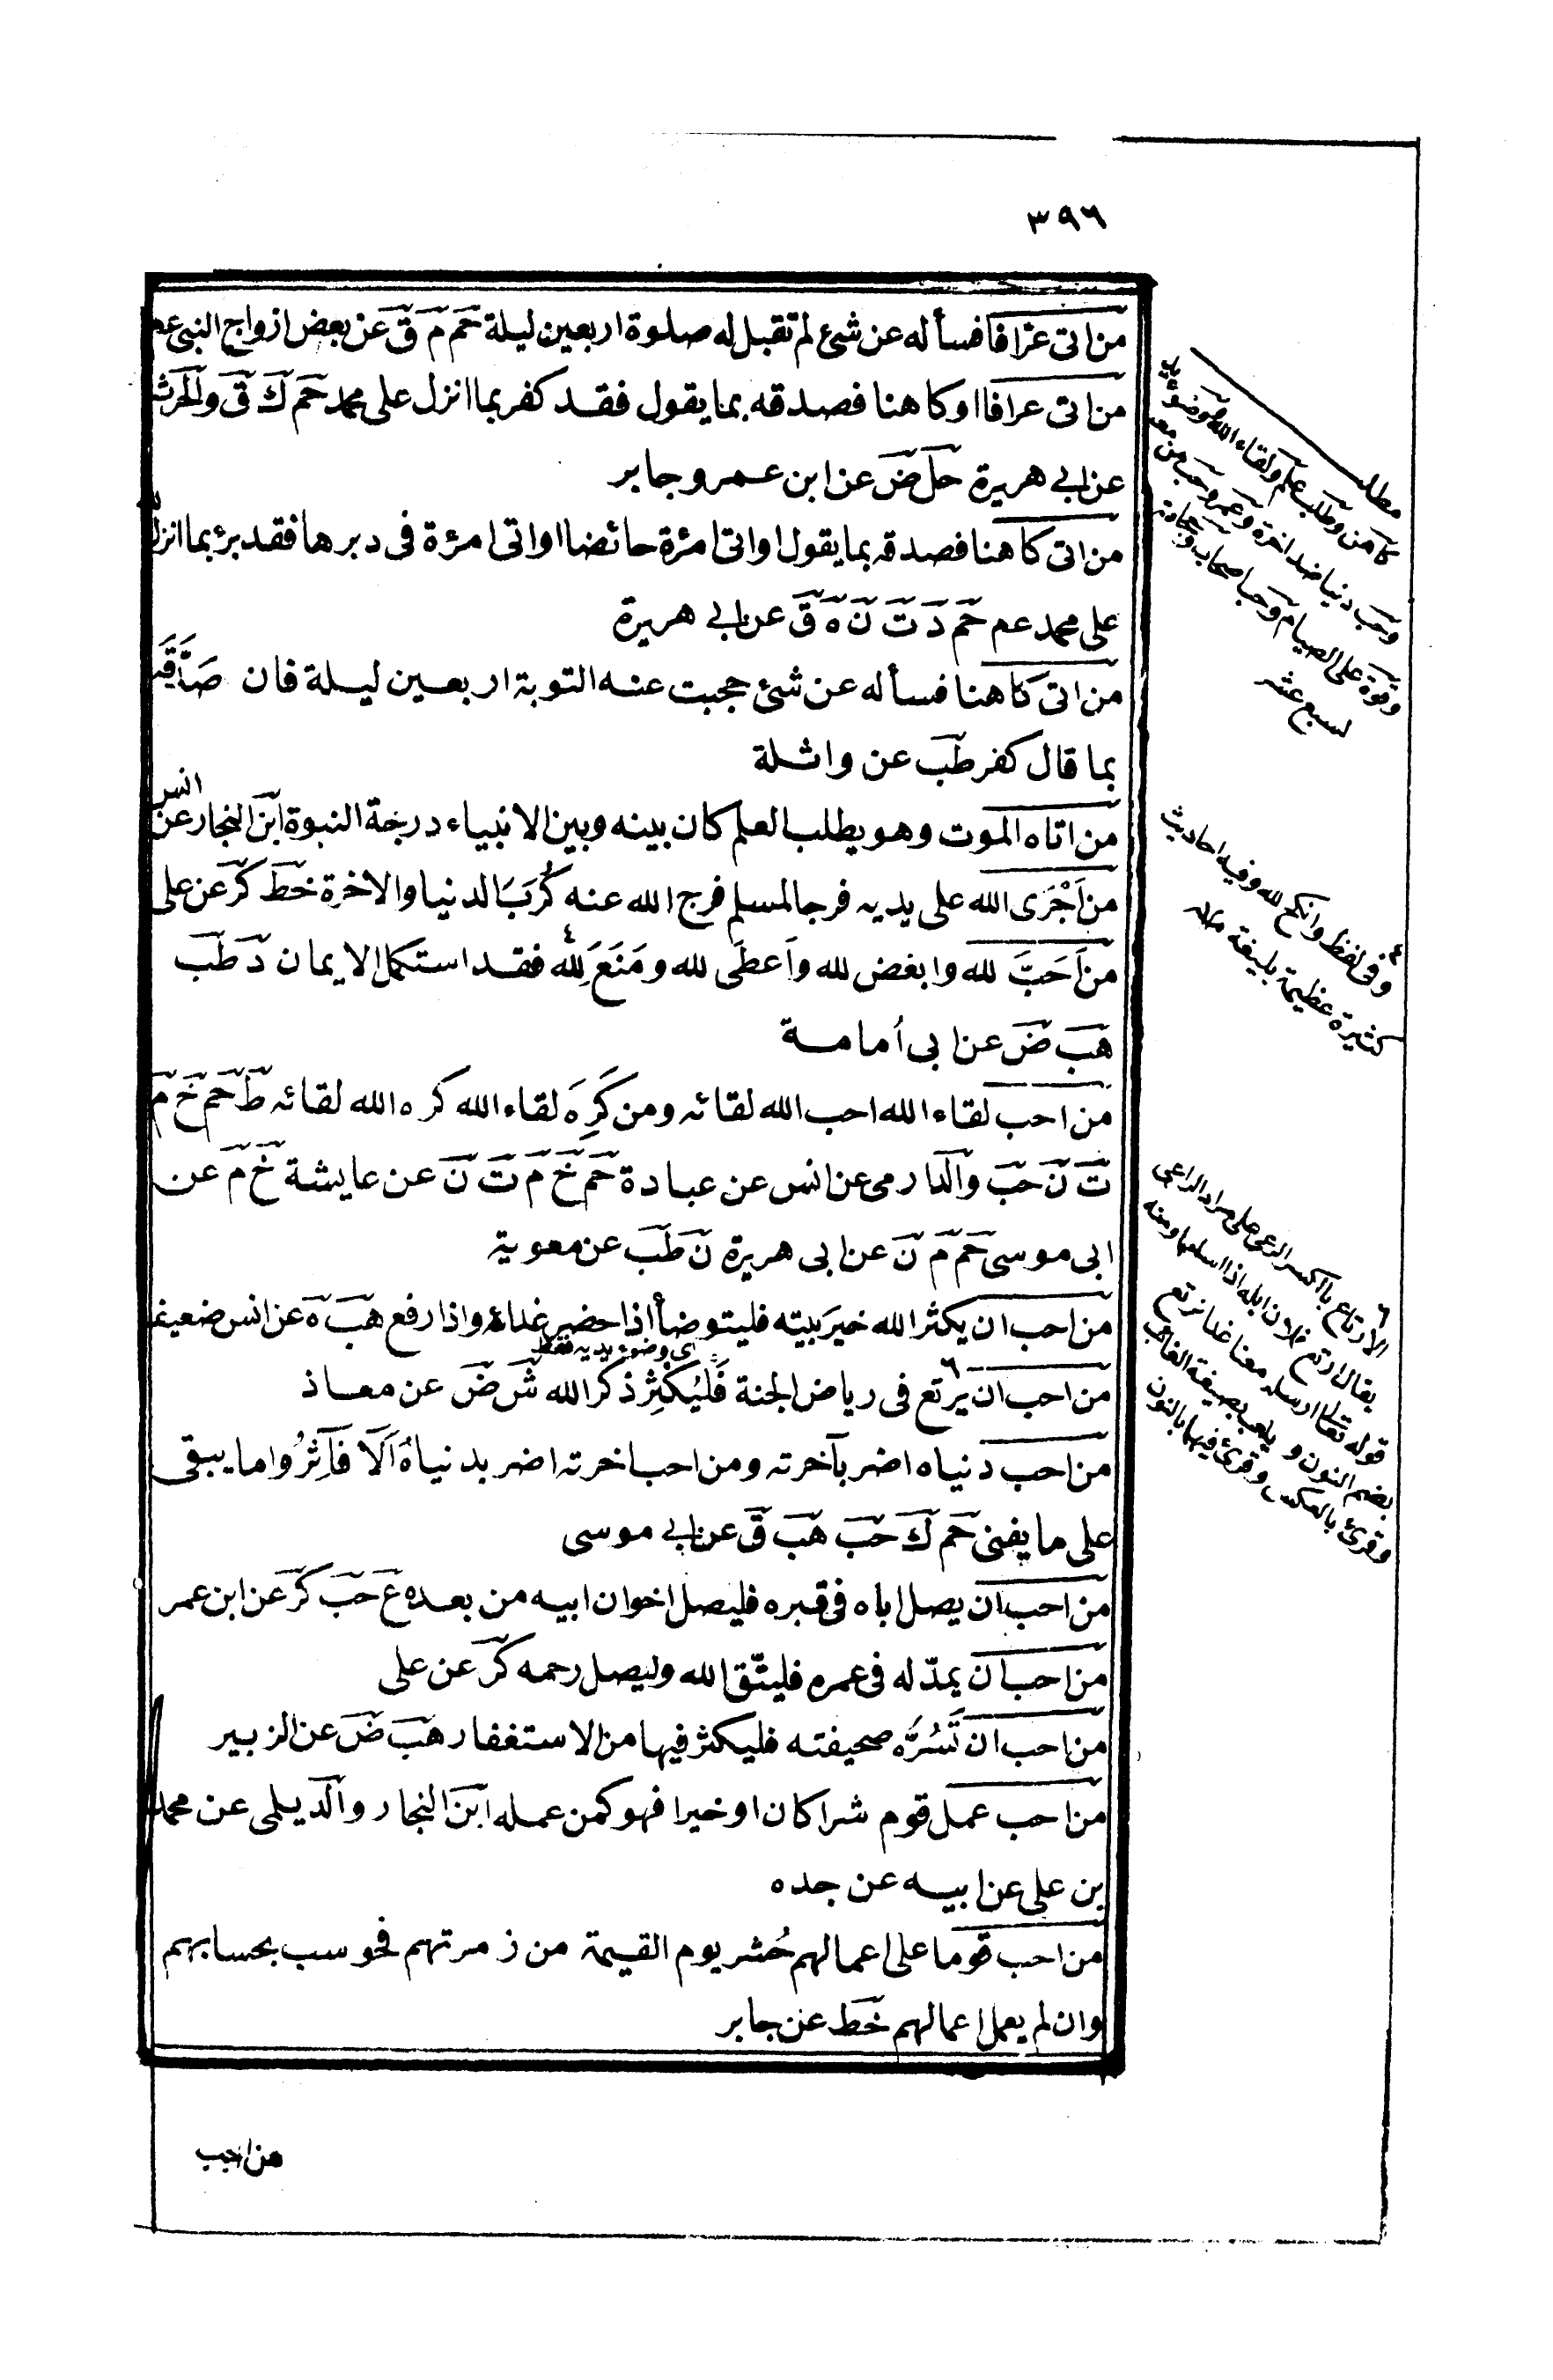 ٣٩٦
من اتى عرّافا فسأله عن شئ لم تقبل له صلوة اربعين ليلة حم م ق عن بعض ازواج النبى عم
من اتى عرافا او كاهنا فصدقه بما يقول فقد كفر بما انزل على محمد حم ك ق والحرث
عن ابى هريرة حل ض عن ابن عمر و جابر
من اتى كاهنا فصدقه بما يقول او اتى امرئة حائضا او اتى امرئة فى دبرها فقد برئ بما انزل
على محمد عم حم د ت ن ه ق عن ابى هريرة
من اتى كاهنا فسأله عن شئ حجبت عنه التوبة اربعين ليلة فان صدّقه
بما قال كفر طب عن واثلة
من اتاه الموت وهو يطلب العلم كان بينه وبين الانبياء درجة النبوة ابن النجار عن انس
من اَجْرَى الله على يديه فرجا لمسلم فرج الله عنه كُرَبَ الدنيا والاخرة خط كر عن على
من اَحَبَّ لله وابغض لله واَعطَى لله ومَنَعَ لِلّه ٤ فقد استكمل الايمان د طب
هب ض عن ابى اُمامة
من احب لقاء الله احب الله لقائه ومن كَرِهَ لقاء الله كره الله لقائه ط حم خ م
ت ن حب والدارمى عن انس عن عبادة حم خ م ت ن عن عايشة خ م عن
ابى موسى حم م ن عن ابى هريرة ن طب عن معوية
من احب ان يكثر الله خيرَ بيته فليتوضأ اذا حضر غداؤه واذا رفع هب ه عن انس ضعيف
اى وضوء يديه فقط
من احب ان يرتع ٦ فى رياض الجنة فَلْيُكْثِرْ ذكر الله ش ض عن معاذ
من احب دنياه اضر بآخرته ومن احب اخرته اضر بدنياهُ اَلَا فَآثِرُوا ما يبقى
على ما يفنى حم ك حب هب ق عن ابى موسى
من احب ان يصل اباه فى قبره فليصل اخوان ابيه من بعده ع حب كر عن ابن عمر
من احب ان يمدّ له فى عمره فليتّق الله وليصل رحمه كر عن على
من احب ان تَسُرَّه صحيفته فليكثر فيها من الاستغفار هب ض عن الزبير
من احب عمل قوم شرا كان او خيرا فهو كمن عمله ابن النجار والديلمى عن محمد
بن على عن ابيه عن جده
من احب قوما على اعمالهم حُشر يوم القيمة من زمرتهم فحوسب بحسابهم
وان لم يعمل اعمالهم خط عن جابر
مطلب
كاهن وطلب علم ولقاء الله ووضوء يد
وحب دنيا ضد اخرة وعمر وحب من معه
وقوة على الصيام وحب اصحاب
لسبع عشر
٤ وفى لفظ وانكح لله وفيه احاديث
كثيرة عظيمة بليغة
٦ الارتاع بالكسر الرعى على مراد الراعى
يقال ارتع فلان ابله اذا اسامها ومنه
قوله تعالى ارسله معنا غدا نرتع
بضم النون ويلعب بصيغة الغائب
وقرئ بالعكس وقرئ فيهما بالنون
من احب